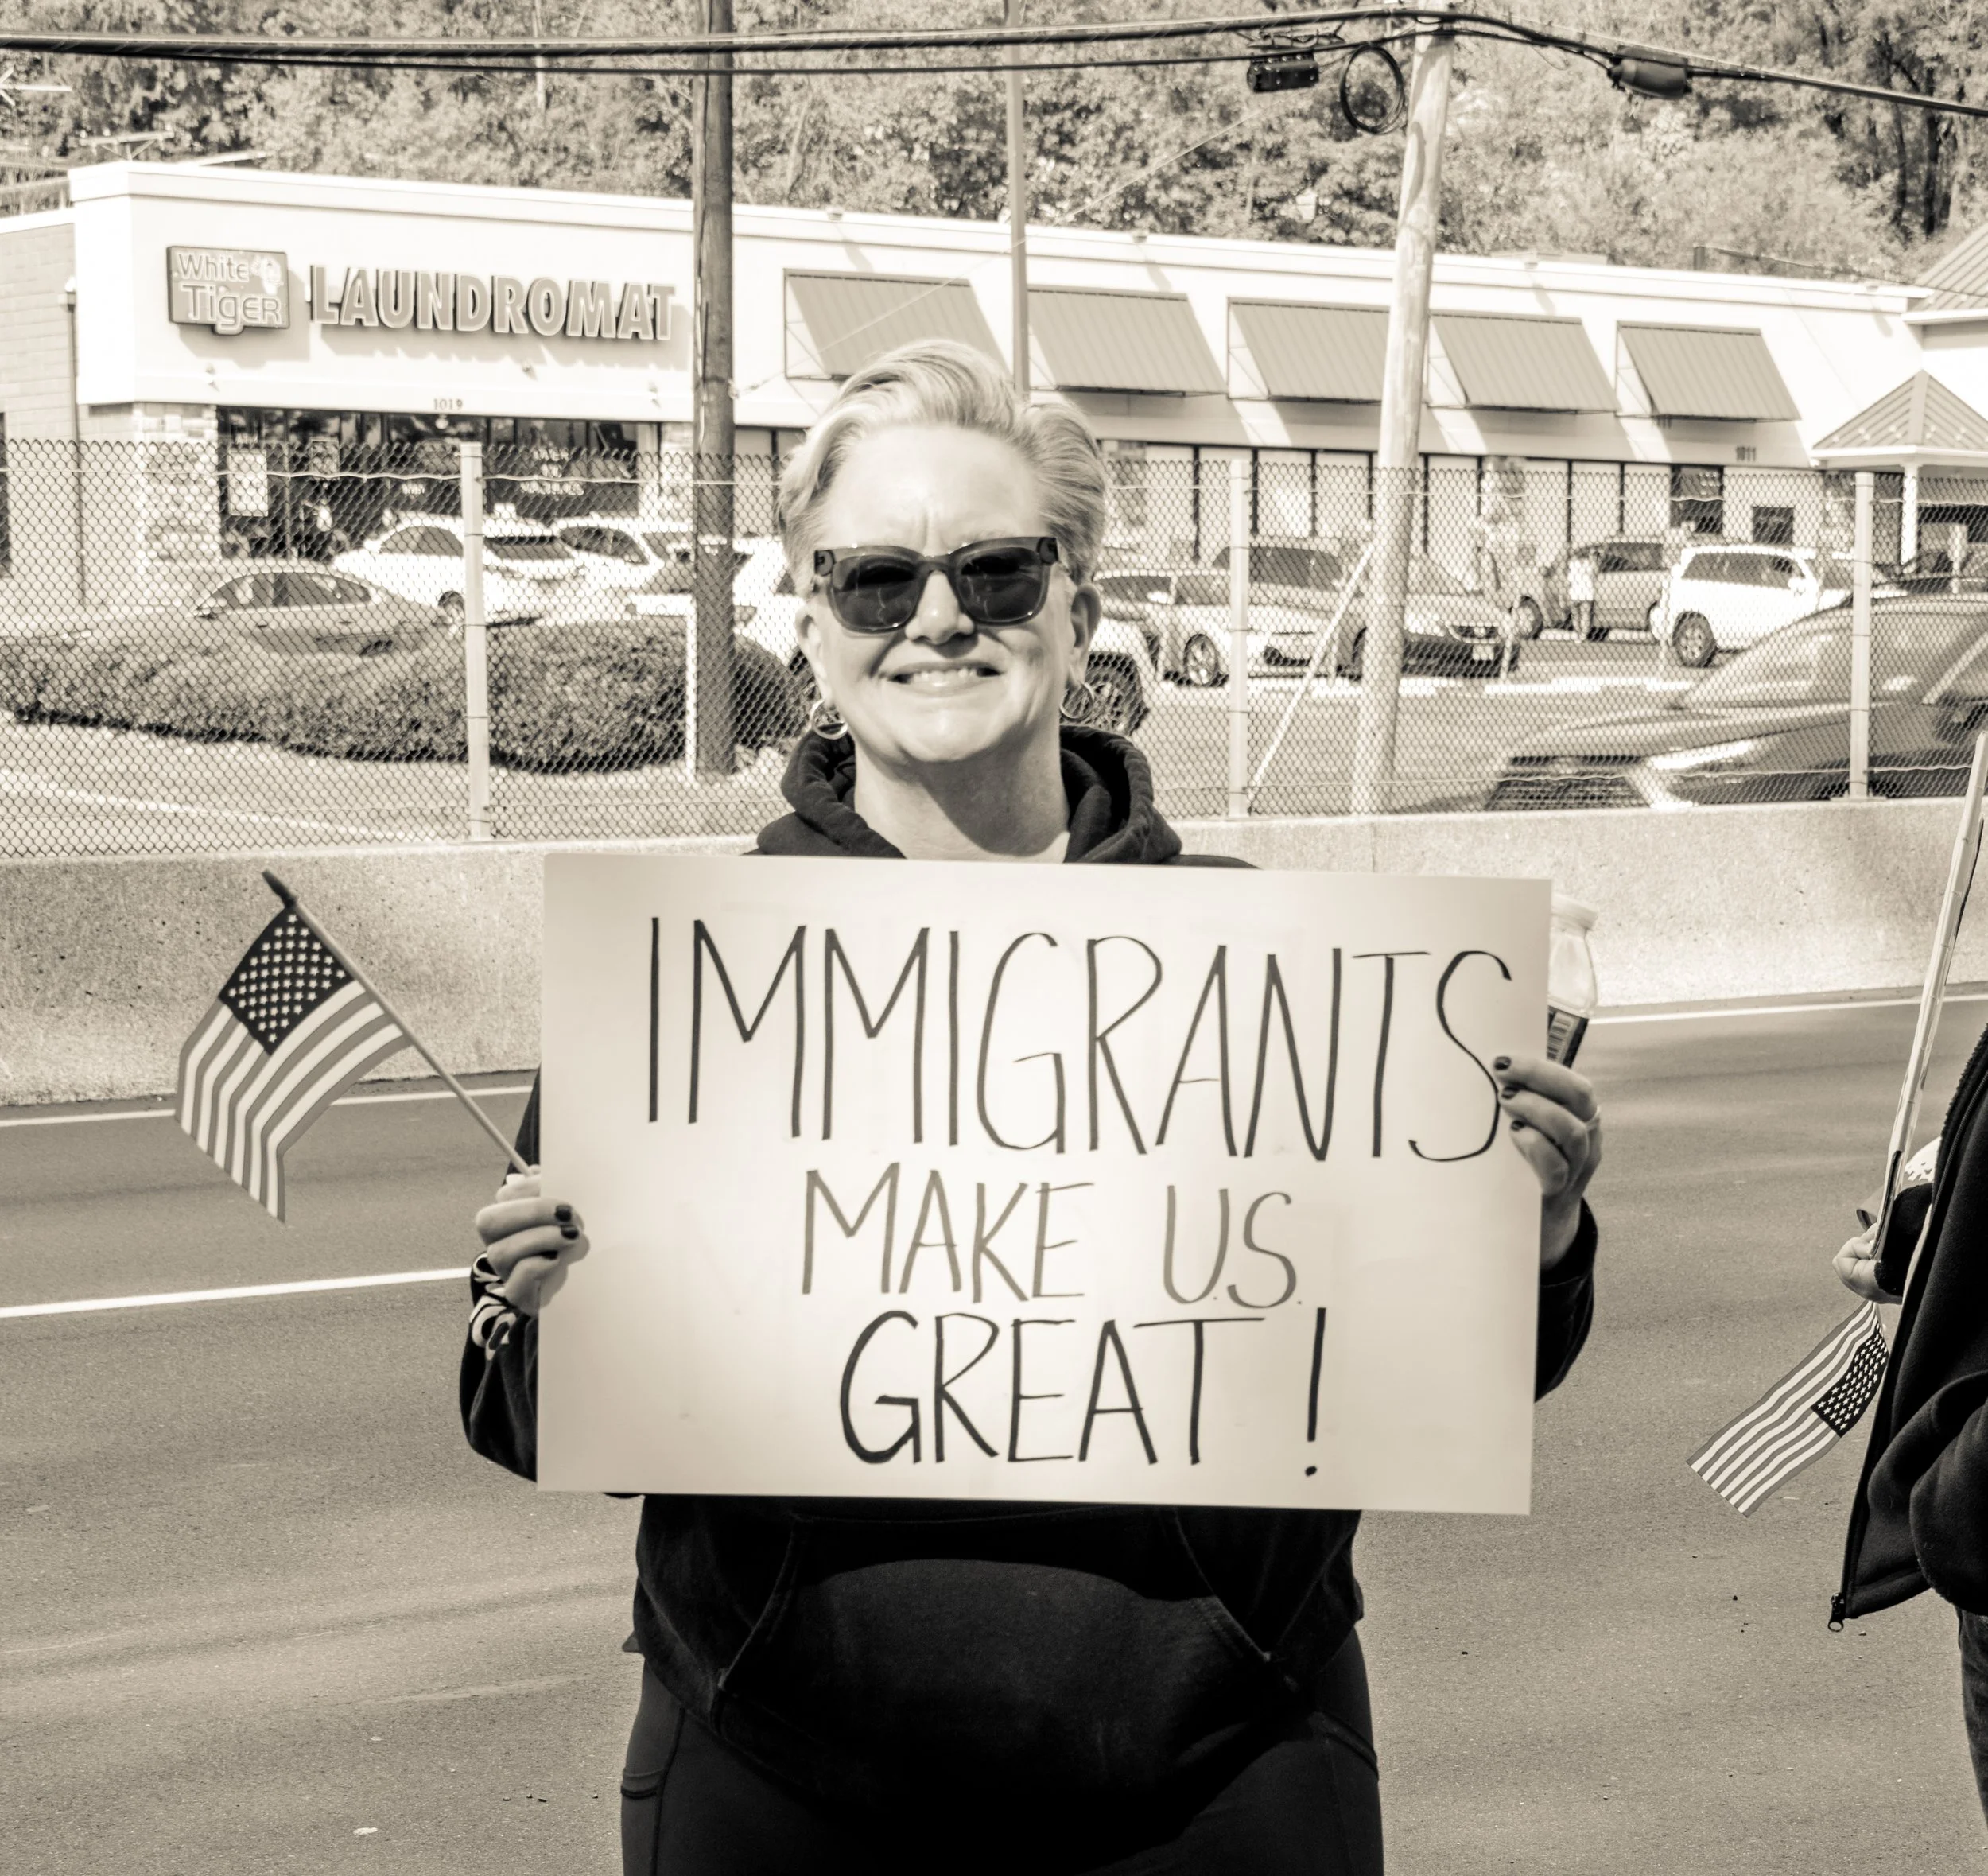 White
Tiger
LAUNDROMAT
1019
1011
IMMIGRANTS
MAKE U.S.
GREAT!